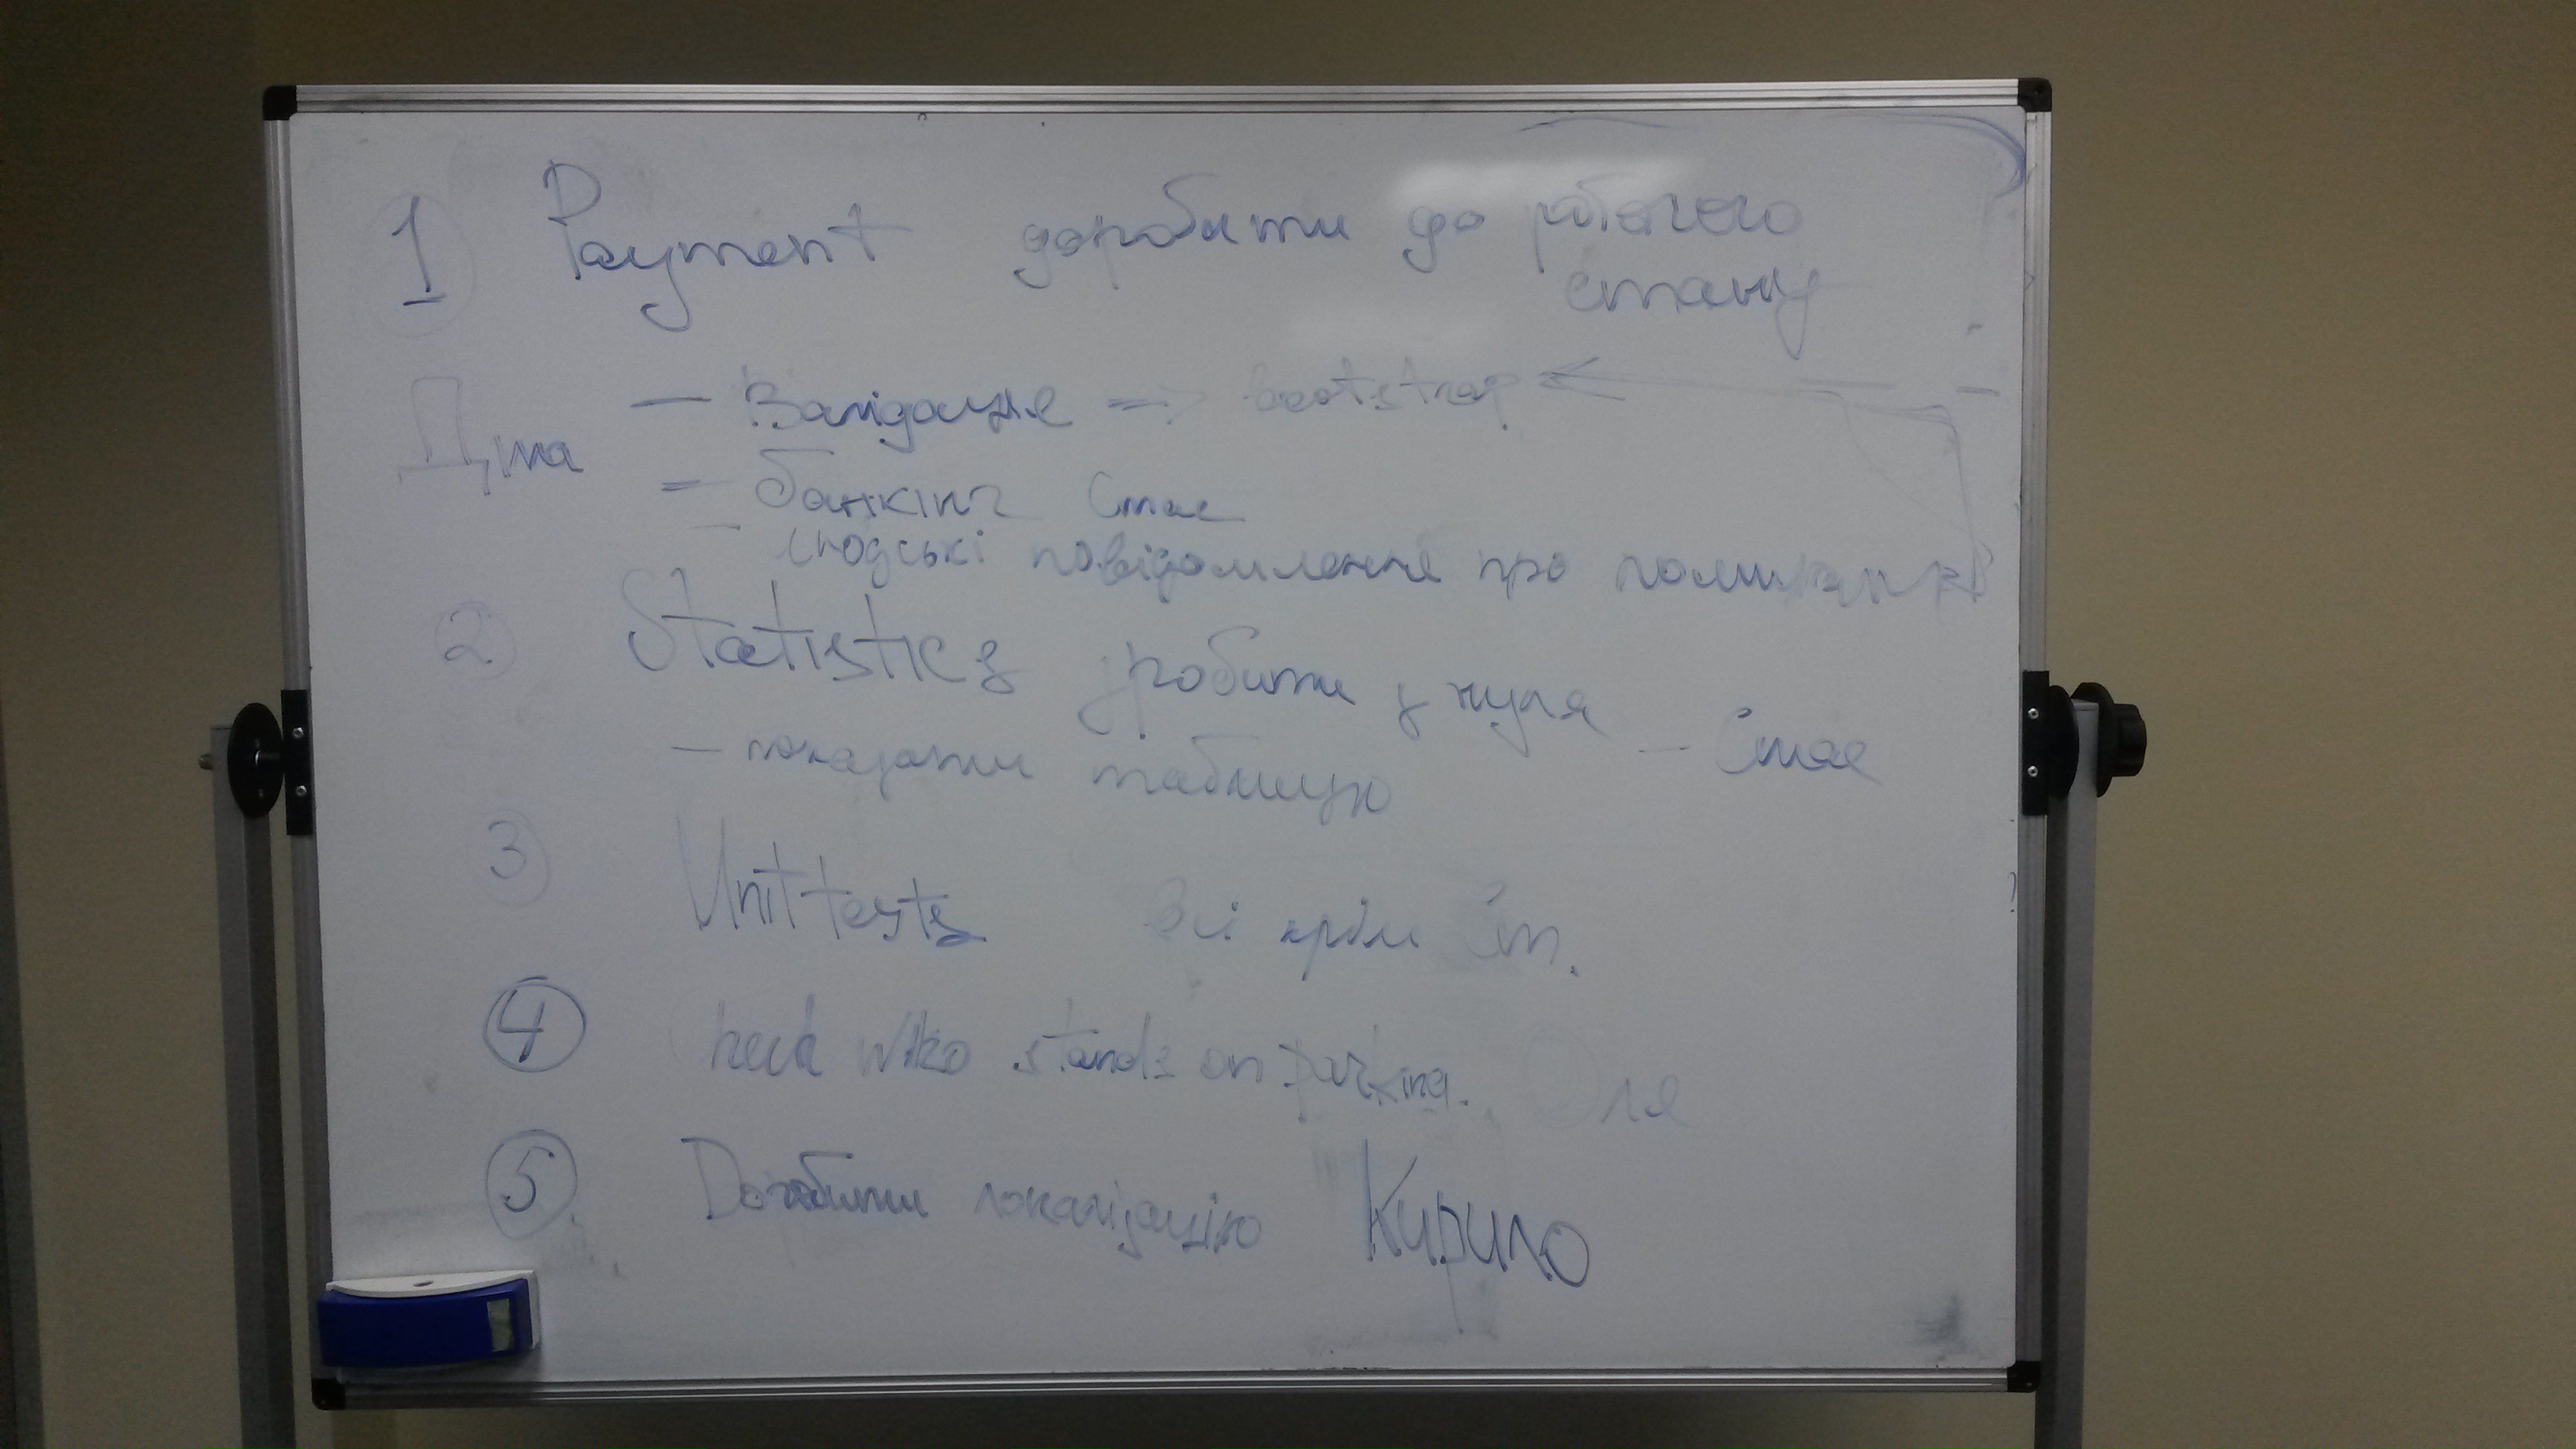 1 Payment доробити до робочого
стану
Діма — Валідація => bootstrap
— банкінг Стас
— людські повідомлення про помилки
2 Statistics зробити з нуля — Стас
— показати таблицю
3 Unit tests Всі крім Ст.
4 Check who stands on parking. Оля
5 Доробити локалізацію Кирило